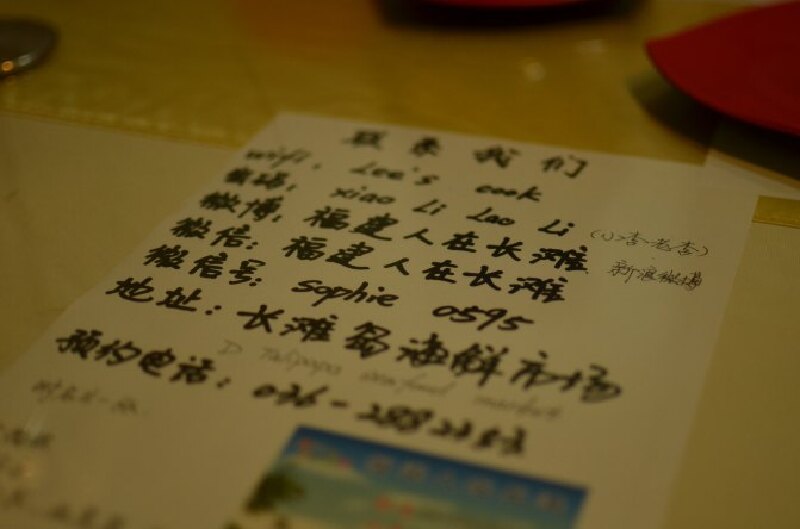 联系我们
wifi: Lee's cook
密码: xiao Li Lao Li (小李老李)
微博: 福建人在长滩 新浪微博
微信: 福建人在长滩
微信号: Sophie 0595
地址: 长滩岛海鲜市场
D Talipapa seafood market
预约电话: 036-288